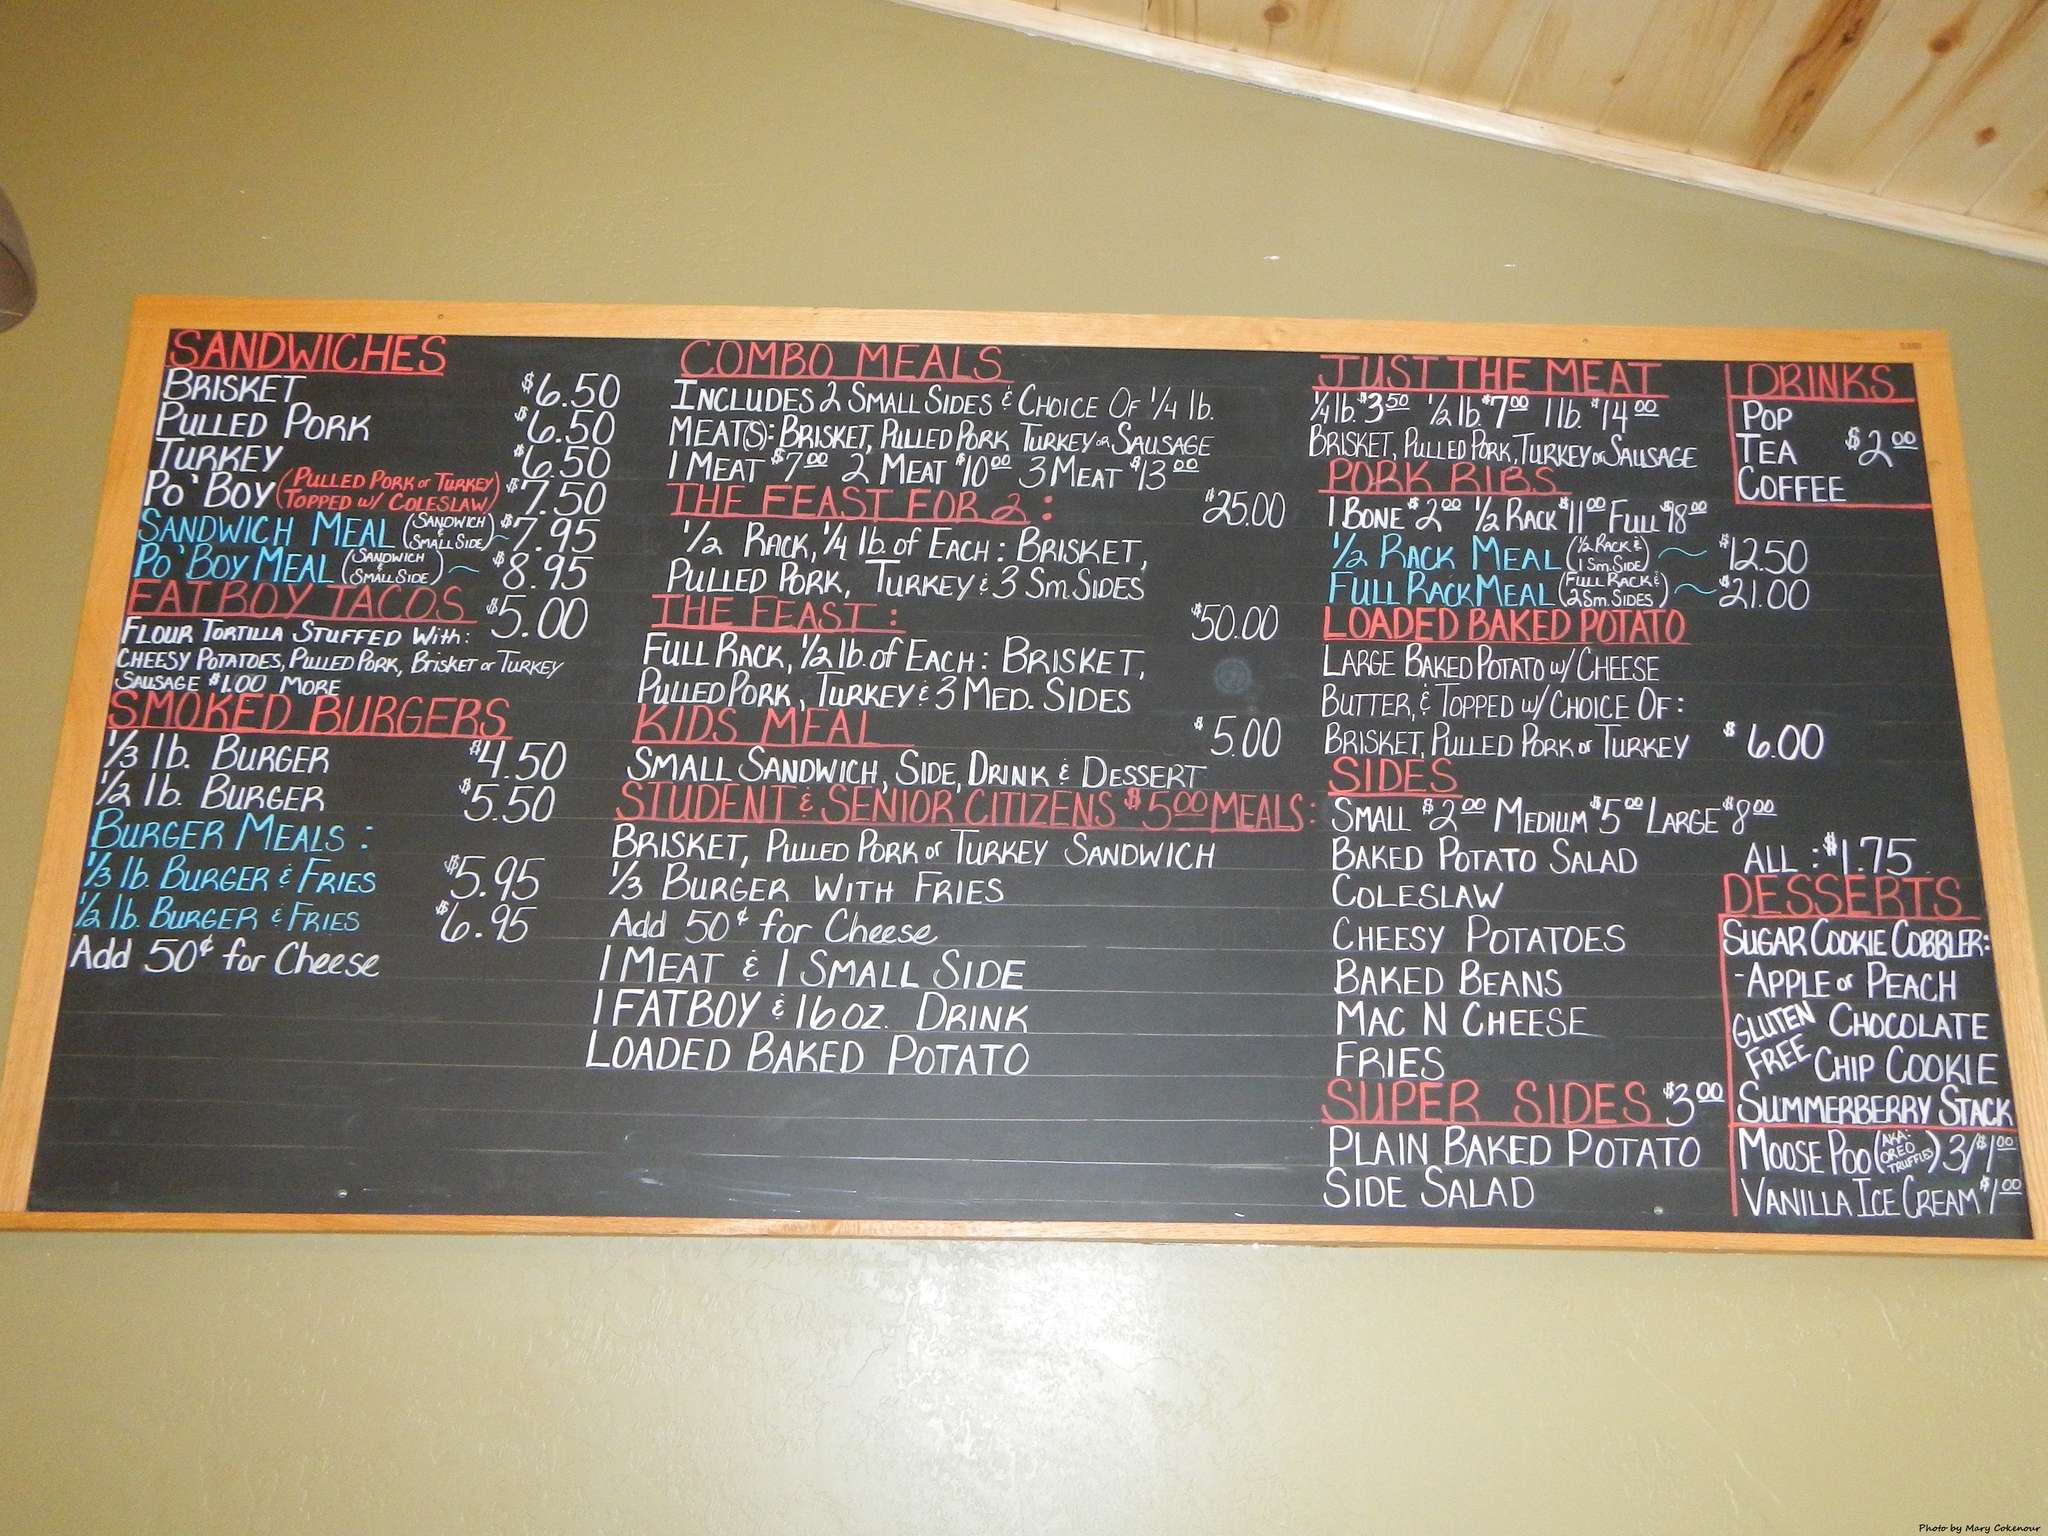 SANDWICHES
BRISKET $6.50
PULLED PORK $6.50
TURKEY $6.50
PO'BOY (PULLED PORK or TURKEY TOPPED w/ COLESLAW) $7.50
SANDWICH MEAL (SANDWICH & SMALL SIDE) ~ $7.95
PO'BOY MEAL (SANDWICH & SMALL SIDE) ~ $8.95
FATBOY TACOS $5.00
FLOUR TORTILLA STUFFED WITH:
CHEESY POTATOES, PULLED PORK, BRISKET or TURKEY
SAUSAGE $1.00 MORE
SMOKED BURGERS
1/3 lb. BURGER $4.50
1/2 lb. BURGER $5.50
BURGER MEALS:
1/3 lb. BURGER & FRIES $5.95
1/2 lb. BURGER & FRIES $6.95
Add 50¢ for Cheese
COMBO MEALS
INCLUDES 2 SMALL SIDES & CHOICE OF 1/4 lb.
MEAT(S): BRISKET, PULLED PORK TURKEY or SAUSAGE
1 MEAT $7.00 2 MEAT $10.00 3 MEAT $13.00
THE FEAST FOR 2: $25.00
1/2 RACK, 1/4 lb. of EACH: BRISKET,
PULLED PORK, TURKEY & 3 Sm. SIDES
THE FEAST: $50.00
FULL RACK, 1/2 lb. of EACH: BRISKET,
PULLED PORK, TURKEY & 3 MED. SIDES
KIDS MEAL $5.00
SMALL SANDWICH, SIDE, DRINK & DESSERT
STUDENT & SENIOR CITIZENS $5.00 MEALS:
BRISKET, PULLED PORK or TURKEY SANDWICH
1/3 BURGER WITH FRIES
Add 50¢ for Cheese
1 MEAT & 1 SMALL SIDE
1 FATBOY & 16 OZ. DRINK
LOADED BAKED POTATO
JUST THE MEAT
1/4 lb. $3.50 1/2 lb. $7.00 1 lb. $14.00
BRISKET, PULLED PORK, TURKEY or SAUSAGE
PORK RIBS
1 BONE $2.00 1/2 RACK $11.00 FULL $18.00
1/2 RACK MEAL (1/2 RACK & 1 Sm. SIDE) ~ $12.50
FULL RACK MEAL (FULL RACK & 2 Sm. SIDES) ~ $21.00
LOADED BAKED POTATO
LARGE BAKED POTATO w/ CHEESE
BUTTER, & TOPPED w/ CHOICE OF:
BRISKET, PULLED PORK or TURKEY $6.00
SIDES
SMALL $2.00 MEDIUM $5.00 LARGE $8.00
BAKED POTATO SALAD
COLESLAW
CHEESY POTATOES
BAKED BEANS
MAC N CHEESE
FRIES
SUPER SIDES $3.00
PLAIN BAKED POTATO
SIDE SALAD
DRINKS
POP
TEA $2.00
COFFEE
ALL: $1.75
DESSERTS
SUGAR COOKIE COBBLER:
-APPLE or PEACH
GLUTEN FREE CHOCOLATE
CHIP COOKIE
SUMMERBERRY STACK
MOOSE POO (AKA: OREO TRUFFLES) 3/$1.00
VANILLA ICE CREAM $1.00
Photo by Mary Cokenour